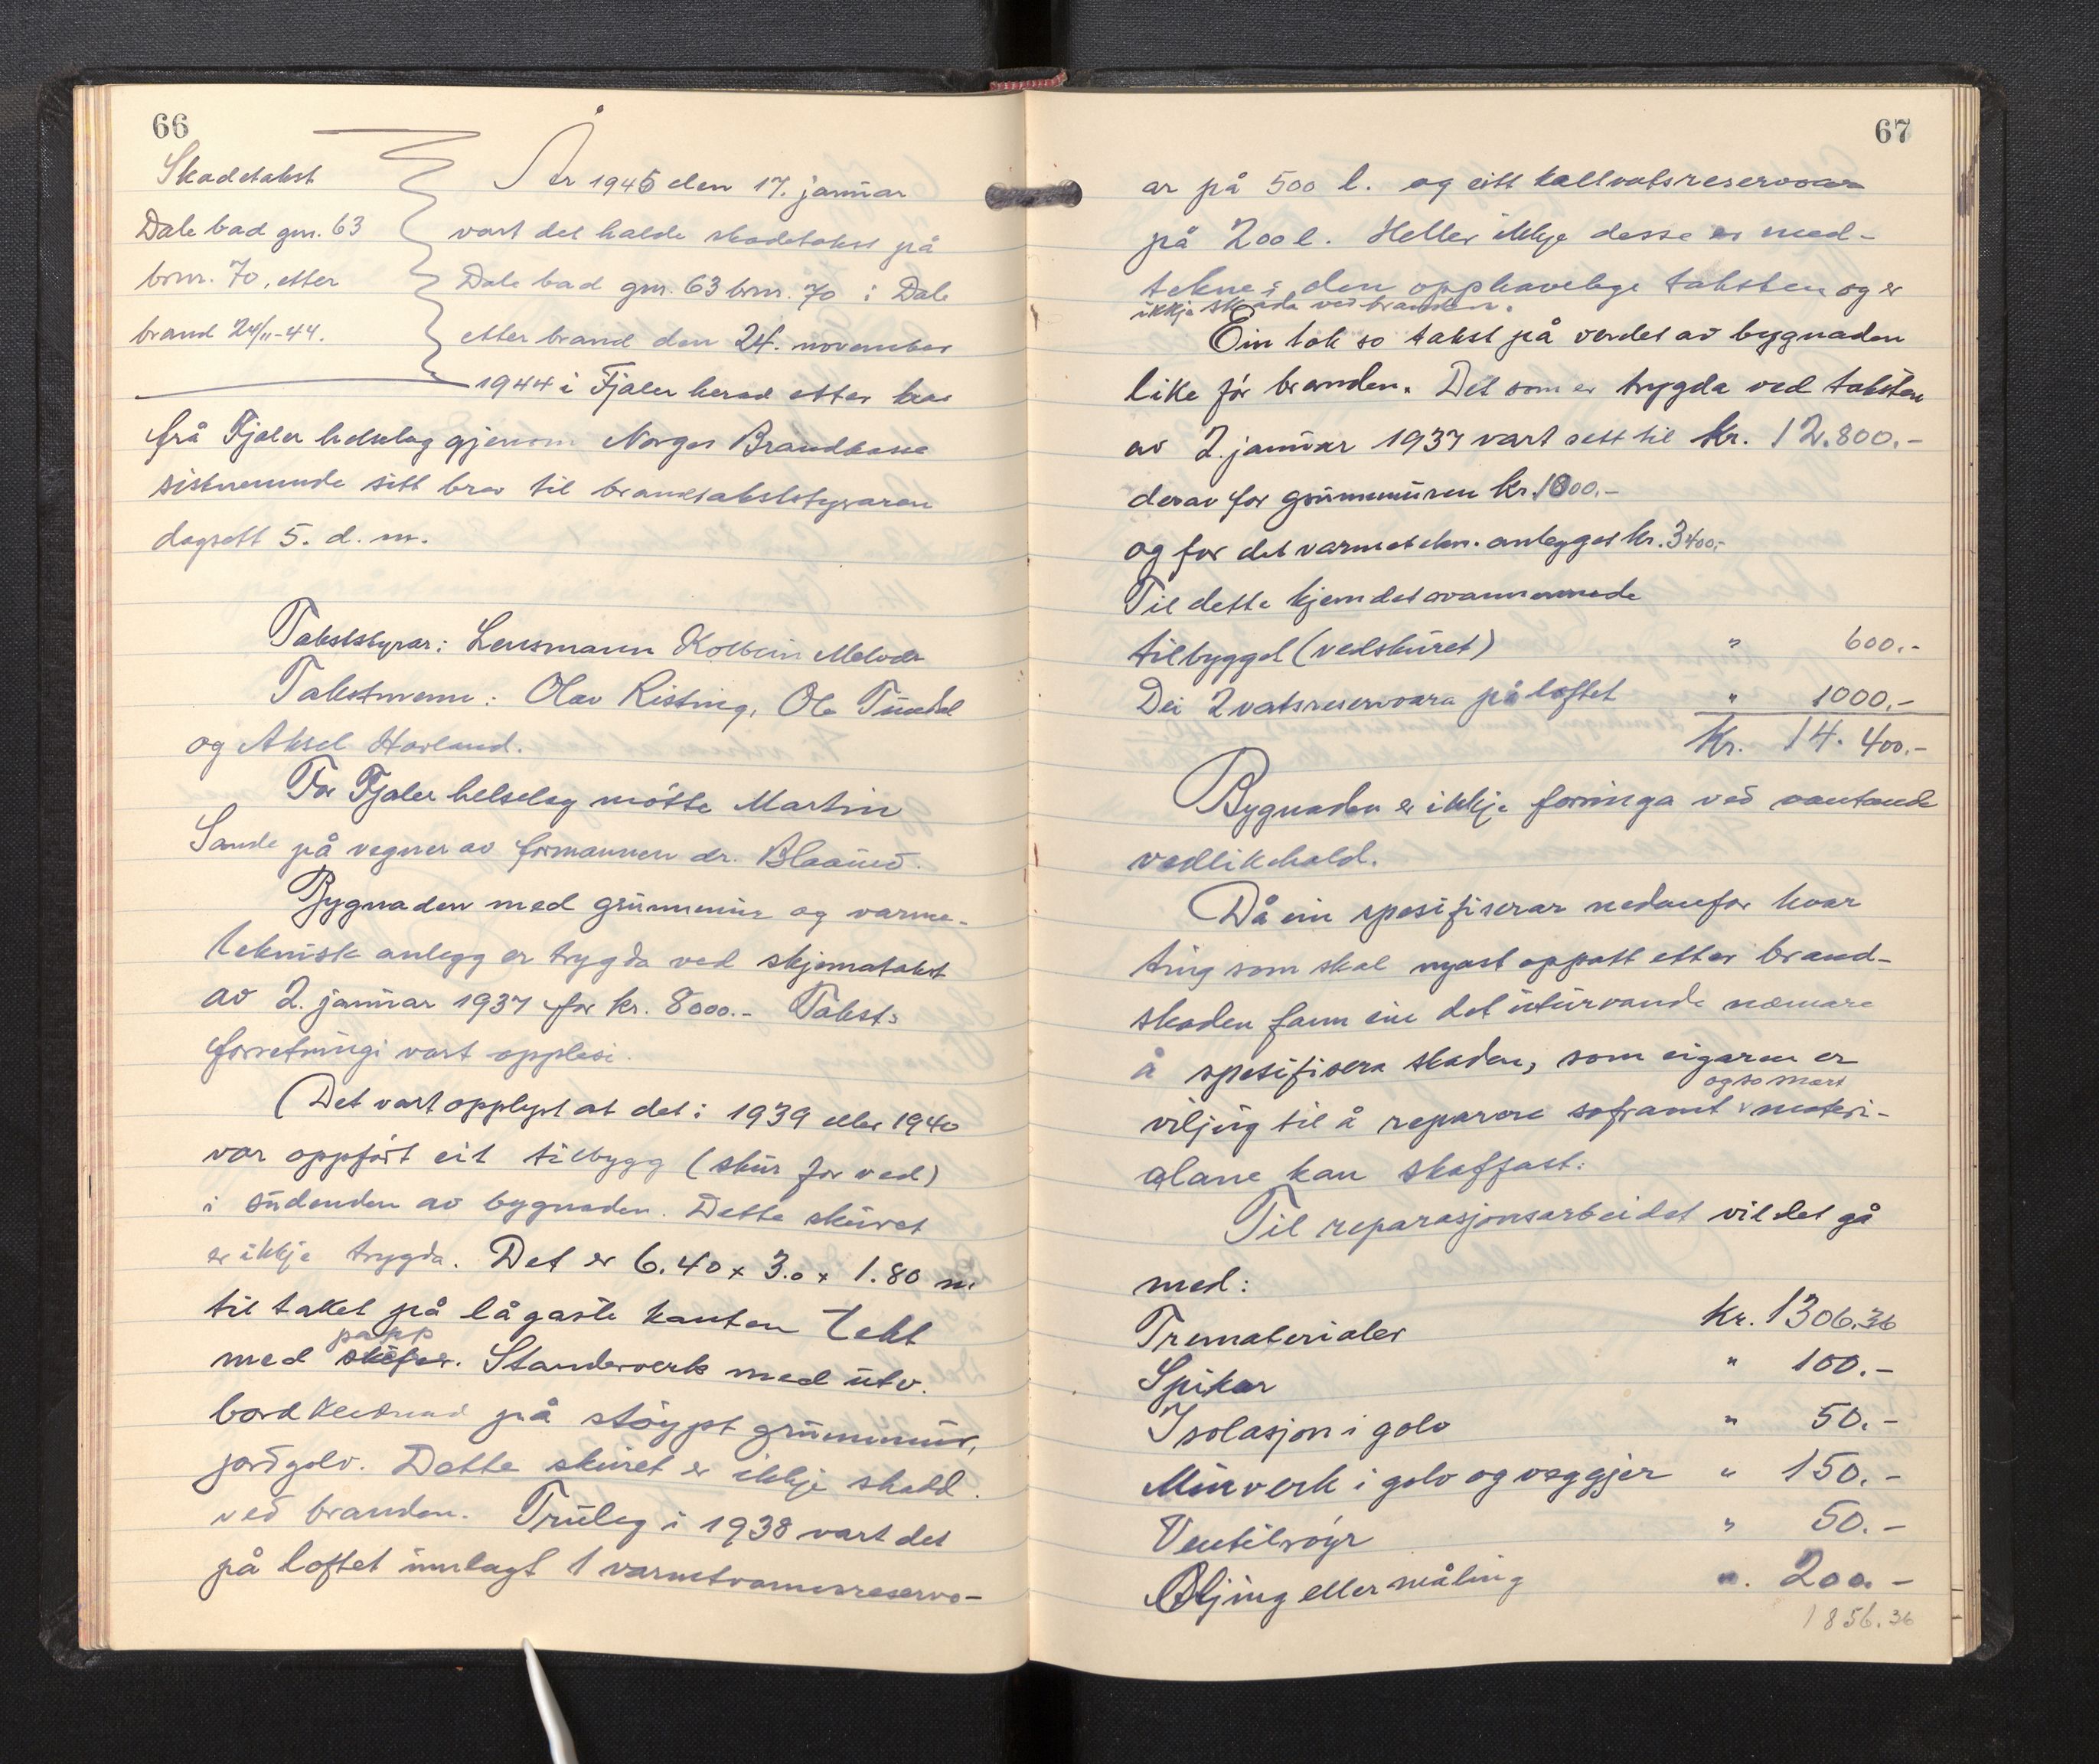 66
Skadetakst
Dale bad gnr. 63
brnr. 70, etter
brand 24/11-44.
År 1945 den 17. januar
vart det halde skadetakst på
Dale bad gnr. 63 brnr. 70 i Dale
etter brand den 24. november
1944 i Fjaler herad etter krav
frå Fjaler helselag gjenom Norges Brandkasse
sistnemnde sitt brev til branntakststyraren
dagsett 5. d. m.
Takststyrar: Lensmann Kolbein Melvær
Takstmenn: Olav Risting, Ole
og Aksel Hovland.
For Fjaler helselag møtte Martin
Sande på vegner av formannen dr. Blaauw.
Bygnaden med grunnmur og varme-
teknisk anlegg er trygda ved skjematakst
av 2. januar 1937 for kr. 8000.- Takst-
forretningi vart opplesi.
Det vart opplyst at det i 1939 eller 1940
var oppført eit tilbygg (skur for ved)
i sudenden av bygnaden. Dette skuret
er ikkje trygda. Det er 6.40 x 3.0 x 1.80 m.
til taket på lågaste kanten tekt
papp
med skifer. Standerverk med utv.
bordklednad på støypt grunnmur,
jordgolv. Dette skuret er ikkje skadd
ved branden. Truleg i 1938 vart det
på loftet innlagt 1 varmtvannsreservo-
67
ar på 500 l. og eitt kaltvatsreservoar
på 200 l. Heller ikkje desse er med-
tekne i den opphavelege taksten og er
ikkje skada ved branden.
Ein tok so takst på verdet av bygnaden
like før branden. Det som er trygda ved taksten
av 2. januar 1937 vart sett til kr. 12.800.-
derav for grunnmuren kr. 1800.-
og for det varmetekn. anlegget kr. 3400,-
Til dette kjem det ovannemnde
tilbygget (vedskuret) " 600.-
Dei 2 vatsreservoara på loftet " 1000.-
Kr. 14.400.-
Bygnaden er ikkje forringa ved vantande
vedlikehald.
Då ein spesifiserar nedanfor kvar
ting som skal nyast oppatt etter brand-
skaden fann ein det uturvande nærmare
å spesifisera skaden, som eigaren er
og so snart
viljug til å reparere soframt materi-
alane kan skaffast.
Til reparasjonsarbeidet vil det gå
med:
Trematerialer kr. 1306.36
Spikar " 100.-
Isolasjon i golv " 50.-
Murverk i golv og veggjer " 150.-
Ventilrøyr " 50.-
Oljing eller måling " 200.-
1856.36